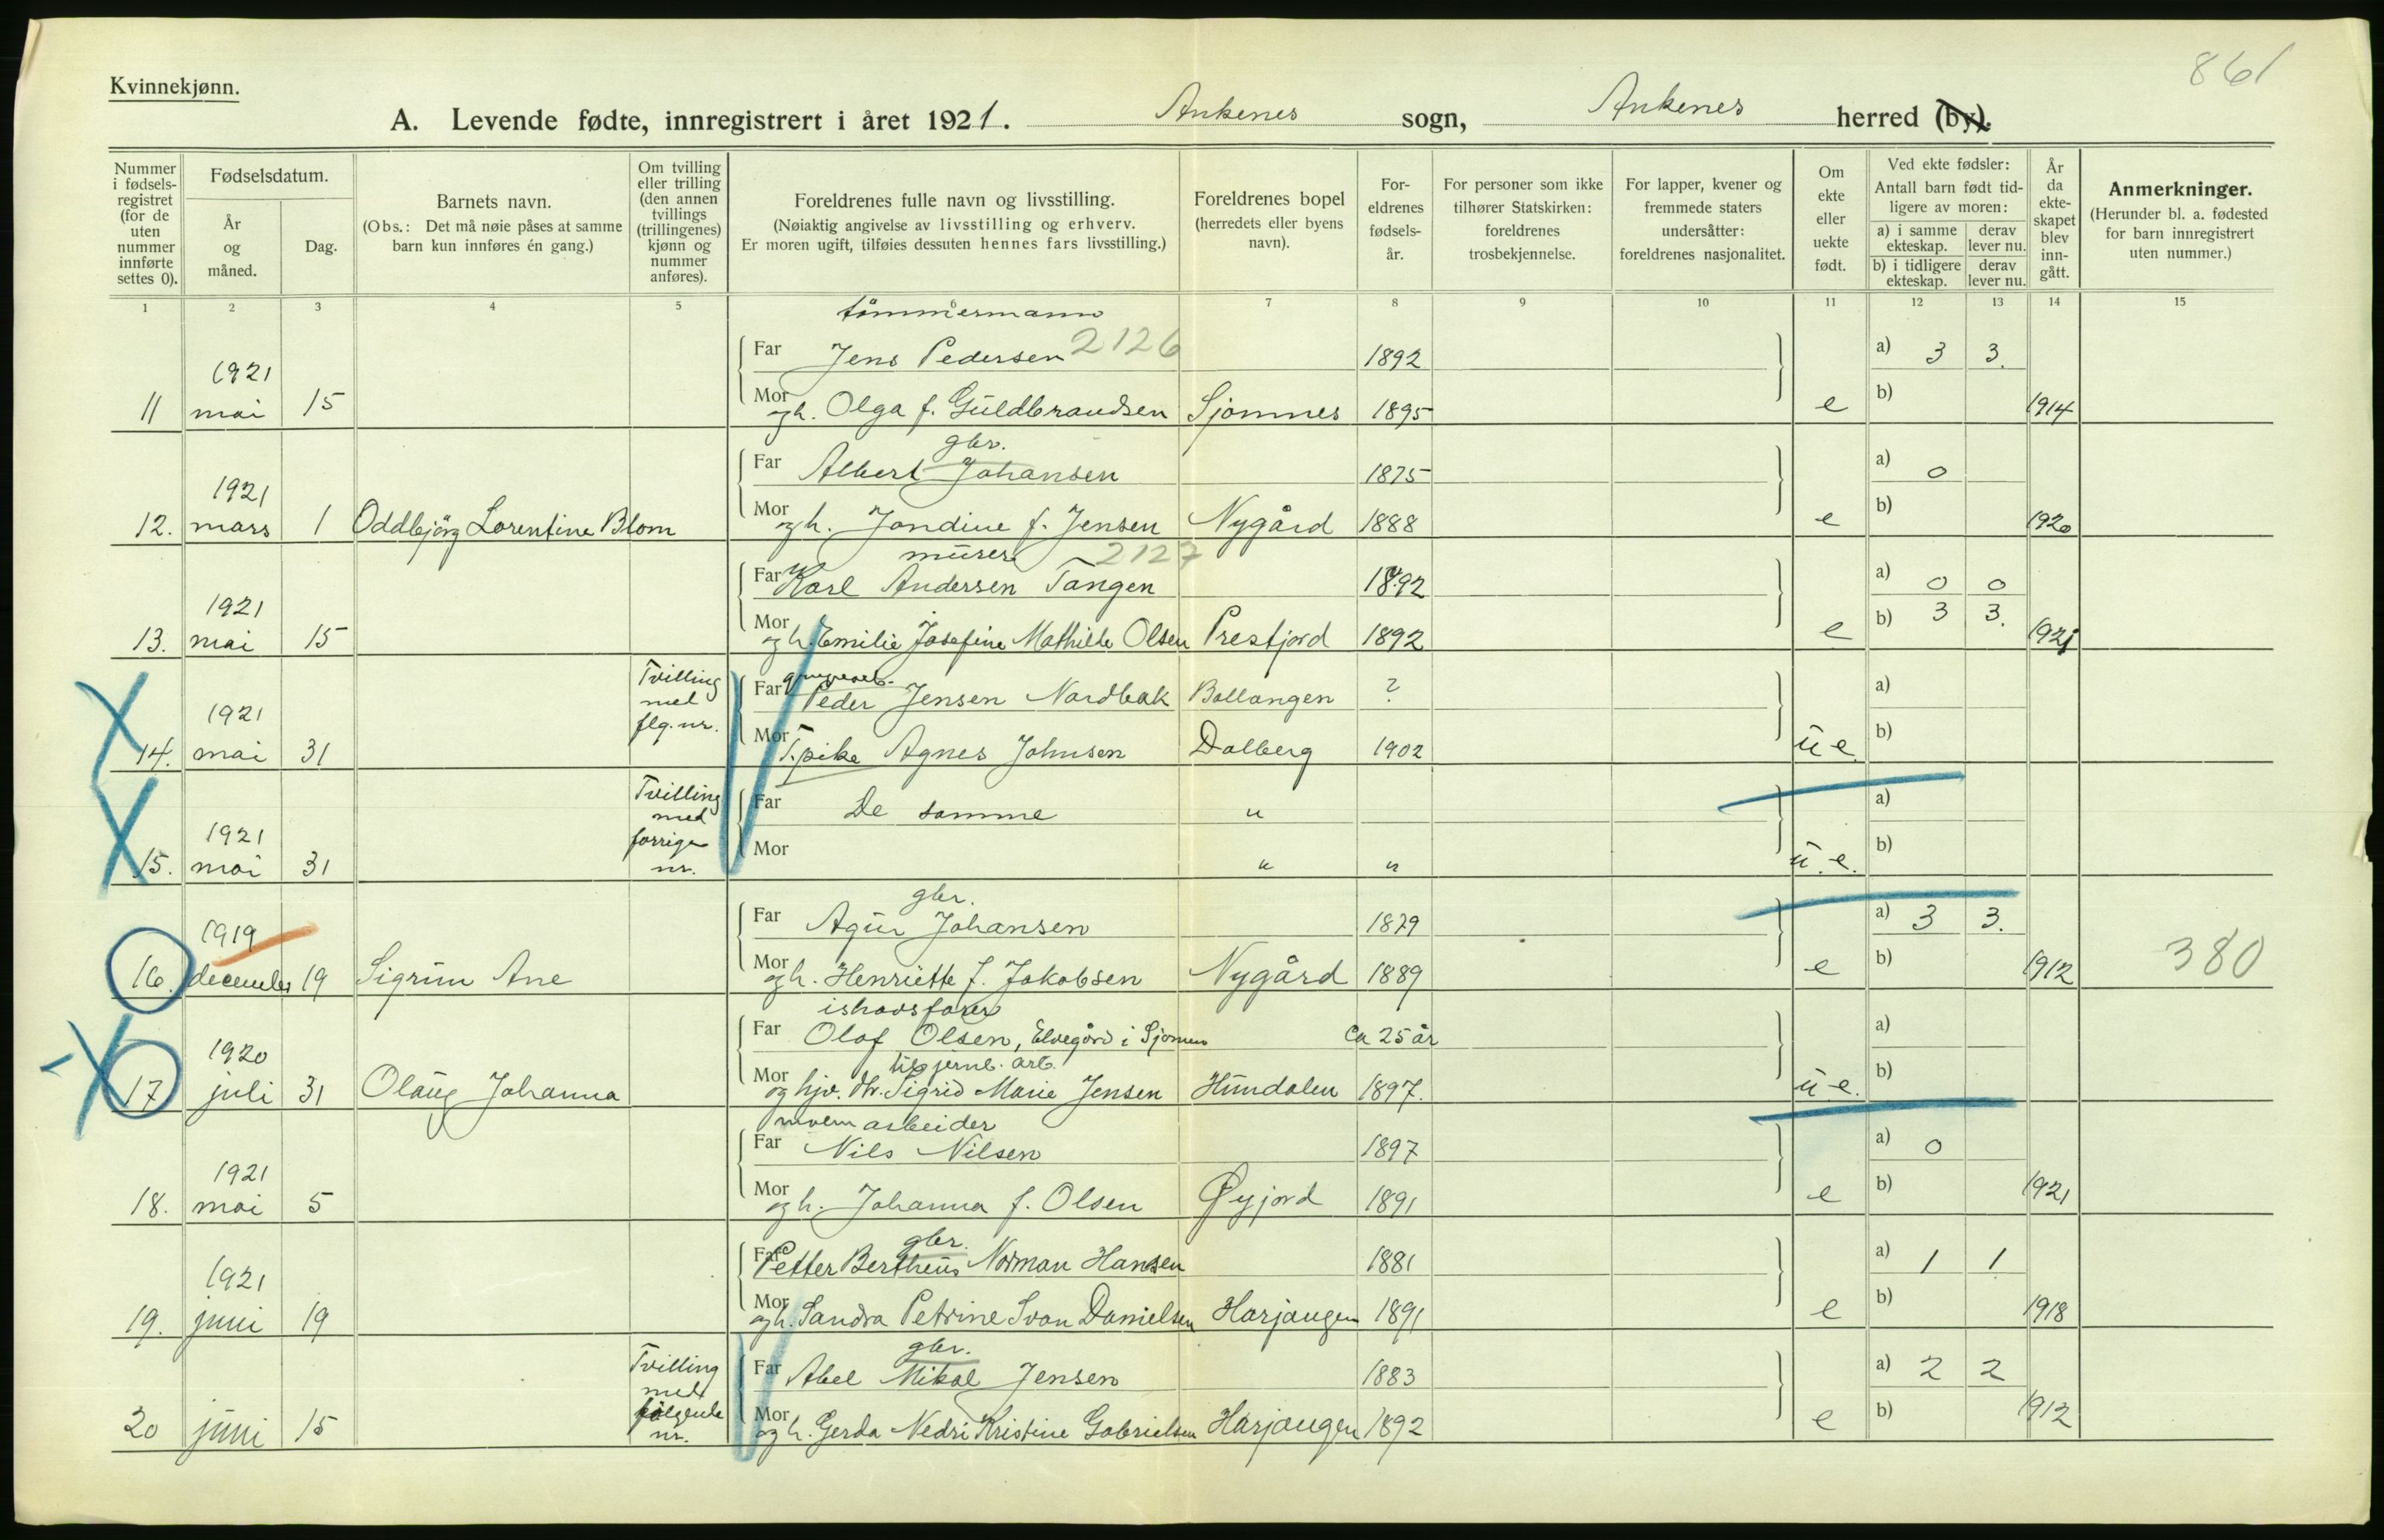 861
Kvinnekjønn.
A. Levende fødte, innregistrert i året 1921. Ankenes sogn, Ankenes herred (by).
Nummer i fødselsregistret (for de uten nummer innførte settes 0).
Fødselsdatum.
År og måned.
Dag.
Barnets navn.
(Obs.: Det må nøie påses at samme barn kun innføres én gang.)
Om tvilling eller trilling (den annen tvillings (trillingenes) kjønn og nummer anføres).
Foreldrenes fulle navn og livsstilling.
(Nøiaktig angivelse av livsstilling og erhverv.
Er moren ugift, tilføies dessuten hennes fars livsstilling.)
Foreldrenes bopel (herredets eller byens navn).
Foreldrenes fødselsår.
For personer som ikke tilhører Statskirken: foreldrenes trosbekjennelse.
For lapper, kvener og fremmede staters undersåtter: foreldrenes nasjonalitet.
Om ekte eller uekte født.
Ved ekte fødsler:
Antall barn født tidligere av moren:
a) i samme ekteskap. derav lever nu.
b) i tidligere ekteskap. derav lever nu.
År da ekteskapet blev inngått.
Anmerkninger.
(Herunder bl. a. fødested for barn innregistrert uten nummer.)
1 2 3 4 5 6 7 8 9 10 11 12 13 14 15
tömmermann
Far Jens Pedersen 2126 1892 a) 3 3.
1921
11 mai 15 Mor og h. Olga f. Guldbrandsen Sjomnes 1895 e b) 1914
gbr.
Far Albert Johansen 1875 a) 0
1921
12. mars 1 Oddbjörg Lorentine Blom Mor og h. Jondine f. Jensen Nygård 1888 e b) 1920
murer 2127
Far Karl Andersen Tangen 1892 a) 0 0
1921
13. mai 15 Mor og h. Emilie Josefine Mathilde Olsen Prestjord 1892 e b) 3 3. 1921
Tvilling med flg. nr.
Far Peder Jensen Nordbak Ballangen ? a)
1921
14. mai 31 Mor T. pike Agnes Johnsen Dalberg 1902 u e. b)
Tvilling med forrige nr.
Far De samme " a)
1921
15. mai 31 Mor " " u. e. b)
gbr.
Far Agur Johansen 1879 a) 3 3.
1919
16. december 19 Sigrun Ane Mor og h. Henriette f. Jakobsen Nygård 1889 e b) 1912 380
ishavsfarer
Far Olaf Olsen, Elvegård i Sjomen ca 25 år a)
1920
jernb. arb.
17 juli 31 Olaug Johanna Mor og hjv. dtr. Sigrid Marie Jensen Hundalen 1897. u. e. b)
arbeider
Far Nils Nilsen 1897 a) 0
1921
18. mai 5 Mor og h. Johanna f. Olsen Øyjord 1891 e b) 1921
gbr.
Far Petter Bertheus Norman Hansen 1881 a) 1 1
1921
19. juni 19 Mor og h. Sandra Petrine Svan Danielsen Harjangen 1891 e b) 1918
gbr.
Tvilling med følgende nr.
Far Abel Mikal Jensen 1883 a) 2 2
20 juni 15 Mor og h. Gerda Nedri Kristine Gabrielsen Harjangen 1892 e b) 1912